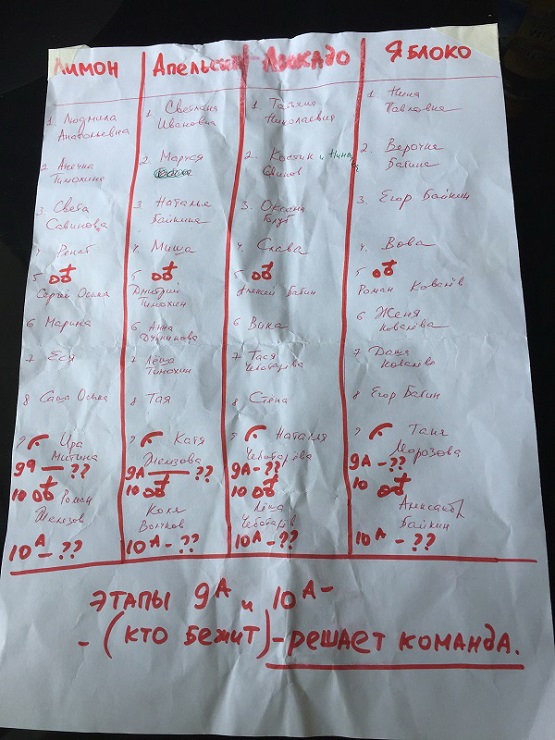 Лимон
1 Людмила
Анатольевна
2. Анечка
Тимохина
3. Света
Савинова
Ренат
5
Сергей Осика
6 Марина
7 Еся
8 Саша Осика
9 Ира
Митина
99 — ??
10 Роман
Железов
10А — ??
Апельсин
1. Светлана
Ивановна
2. Маруся
3. Наталья
Байкина
4. Миша
5
Дмитрий
Тимохин
6 Анна
7 Лёша
Тимохин
8 Тая
9 Катя
Железова
9А — ??
10
Коля
Волков
10А — ??
Авокадо
1. Татьяна
Николаевна
2. Костик и Нина
3. Оксана
4 Слава
5
Алексей Бабин
6 Вика
7 Тася
Чеботарёва
8 Стёпа
9 Наталья
Чеботарёва
9А - ??
10
Лёша
Чеботарёв
10А - ??
Яблоко
1 Нина
Павловна
2. Верочка
Бабина
3. Егор Байкин
4. Вова
5
Роман Ковалёв
6 Женя
Ковалёва
7 Даша
Ковалёва
8 Егор Бабин
9 Таня
Морозова
9А - ??
10
Александр
Байкин
10А - ??
ЭТАПЫ 9А и 10А -
- (КТО БЕЖИТ) - РЕШАЕТ КОМАНДА.